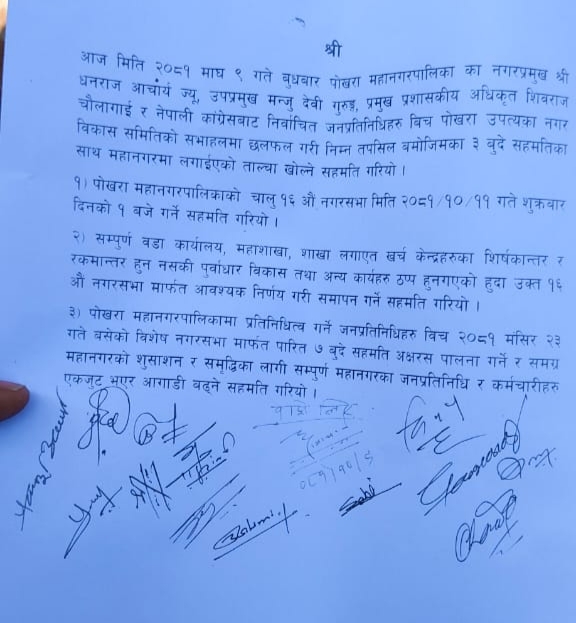 श्री
आज मिति २०८१ माघ ९ गते बुधबार पोखरा महानगरपालिका का नगरप्रमुख श्री
धनराज आचार्य ज्यू, उपप्रमुख मन्जु देवी गुरुङ, प्रमुख प्रशासकीय अधिकृत शिवराज
चौलागाई र नेपाली कांग्रेसबाट निर्वाचित जनप्रतिनिधिहरु विच पोखरा उपत्यका नगर
विकास समितिको सभाहलमा छलफल गरी निम्न तपसिल बमोजिमका ३ बुदे सहमतिका
साथ महानगरमा लगाईएको ताल्चा खोल्ने सहमति गरियो ।
१) पोखरा महानगरपालिकाको चालु १६ औं नगरसभा मिति २०८१/१०/११ गते शुक्रबार
दिनको १ बजे गर्ने सहमति गरियो ।
२) सम्पुर्ण वडा कार्यालय, महाशाखा, शाखा लगाएत खर्च केन्द्रहरुका शिर्षकान्तर र
रकमान्तर हुन नसकी पुर्वाधार विकास तथा अन्य कार्यहरु ठप्प हुनगएको हुदा उक्त १६
औ नगरसभा मार्फत आवश्यक निर्णय गरी समापन गर्ने सहमति गरियो ।
३) पोखरा महानगरपालिकामा प्रतिनिधित्व गर्ने जनप्रतिनिधिहरु विच २०८१ मंसिर २३
गते बसेको विशेष नगरसभा मार्फत पारित ७ बुदे सहमति अक्षरस पालना गर्ने र समग्र
महानगरको शुसाशन र समृद्धिका लागी सम्पुर्ण महानगरका जनप्रतिनिधि र कर्मचारीहरु
एकजुट भएर आगाडी बढ्ने सहमति गरियो ।